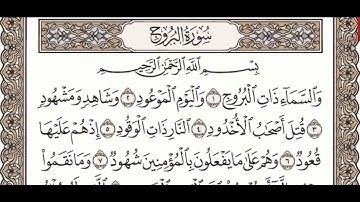 سُورَةُ البُرُوجِ
بِسْمِ ٱللَّهِ ٱلرَّحْمَٰنِ ٱلرَّحِيمِ
وَٱلسَّمَآءِ ذَاتِ ٱلْبُرُوجِ ١ وَٱلْيَوْمِ ٱلْمَوْعُودِ ٢ وَشَاهِدٍ وَمَشْهُودٍ
٣ قُتِلَ أَصْحَٰبُ ٱلْأُخْدُودِ ٤ ٱلنَّارِ ذَاتِ ٱلْوَقُودِ ٥ إِذْ هُمْ عَلَيْهَا
قُعُودٌ ٦ وَهُمْ عَلَىٰ مَا يَفْعَلُونَ بِٱلْمُؤْمِنِينَ شُهُودٌ ٧ وَمَا نَقَمُوا۟